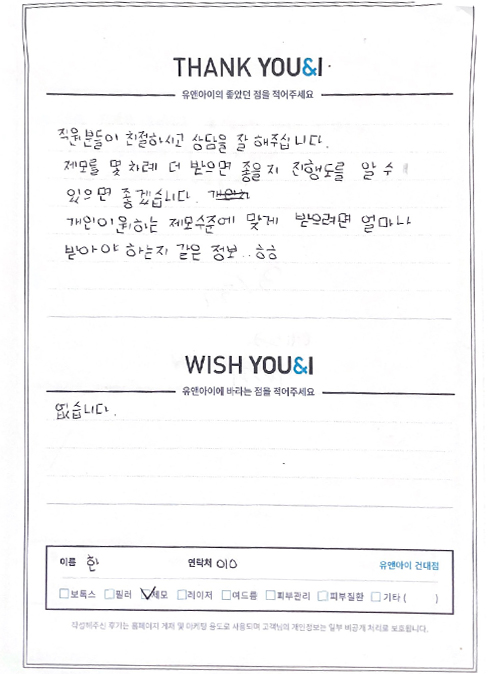 THANK YOU&I
유앤아이의 좋았던 점을 적어주세요
직원분들이 친절하시고 상담을 잘 해주십니다.
제모를 몇 차례 더 받으면 좋을지 진행도를 알 수
있으면 좋겠습니다.
개인이 원하는 제모수준에 맞게 받으려면 얼마나
받아야 하는지 같은 정보..ㅎㅎ
WISH YOU&I
유앤아이에 바라는 점을 적어주세요
없습니다.
이름 한 연락처 010 유앤아이 건대점
보톡스 필러 제모 레이저 여드름 피부관리 피부질환 기타 ( )
작성해주신 후기는 홈페이지 게재 및 마케팅 용도로 사용되며 고객님의 개인정보는 일부 비공개 처리로 보호됩니다.